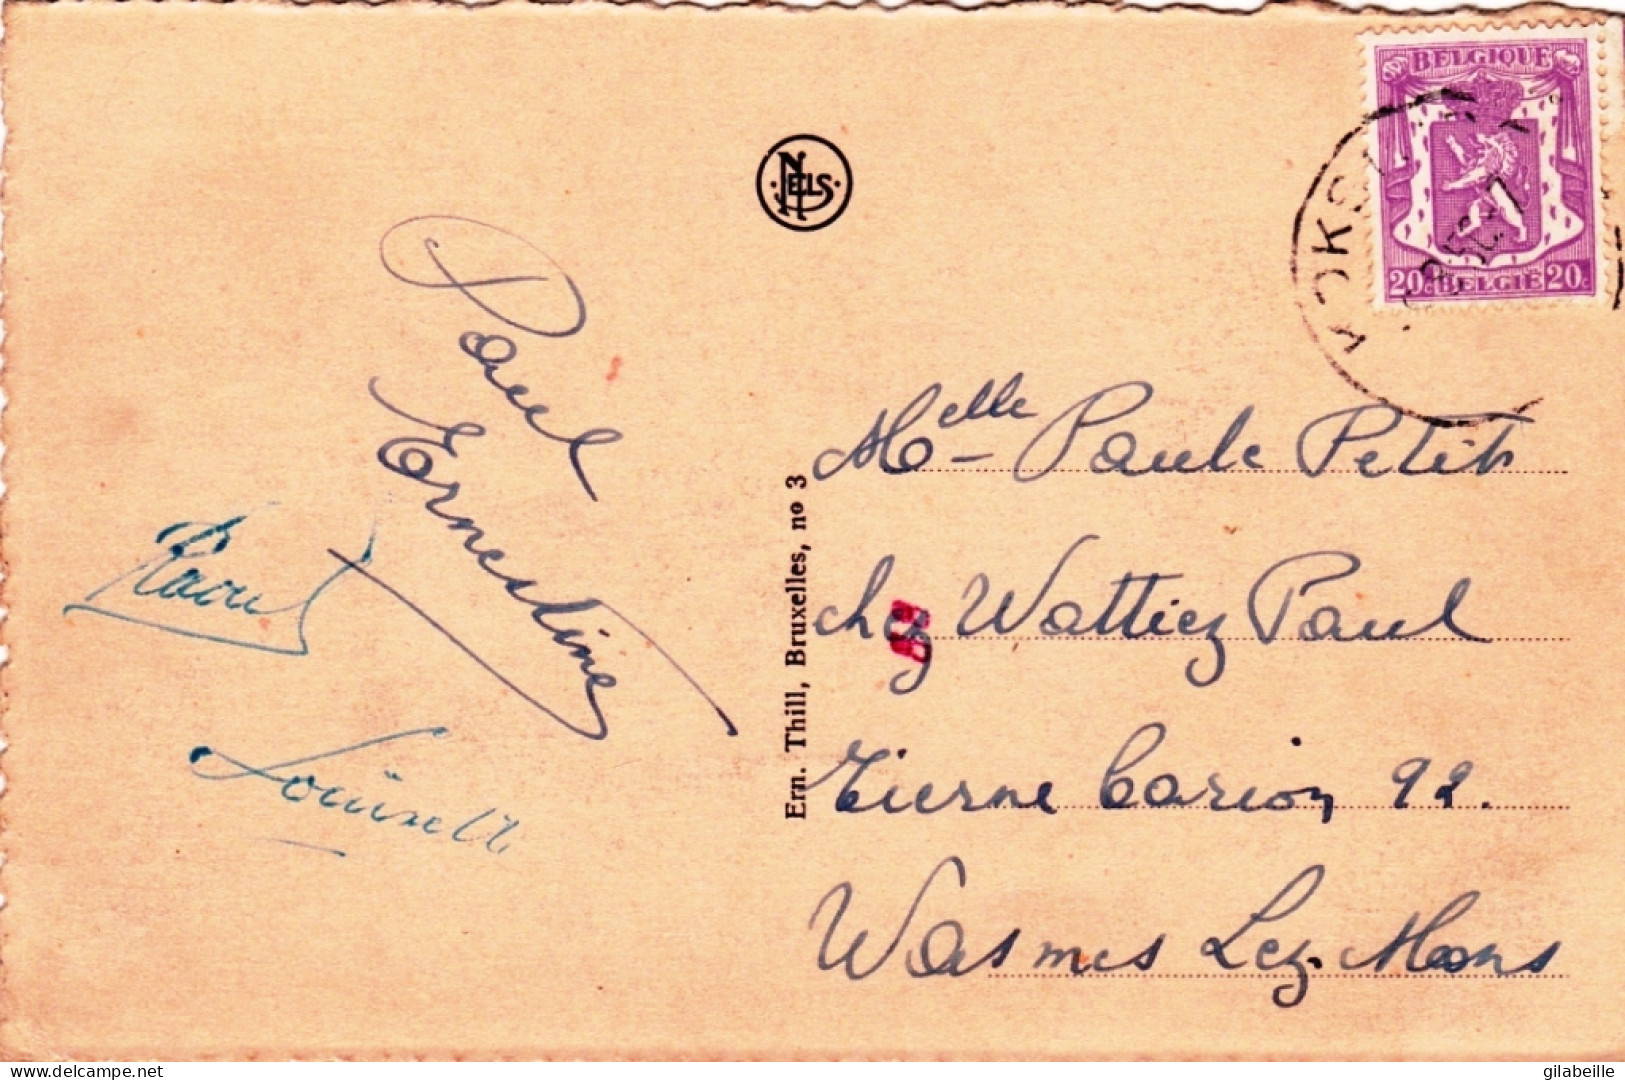 BELGIQUE
20c BELGIË 20c
KOKS
NELS
Paul
Ernestine
Raoul
Louisette
Ern. Thill, Bruxelles, no 3
Melle Paule Petit
chez Wattiez Paul
Tierne Carion 92.
Wasmes Lez-Mons
gilabeille